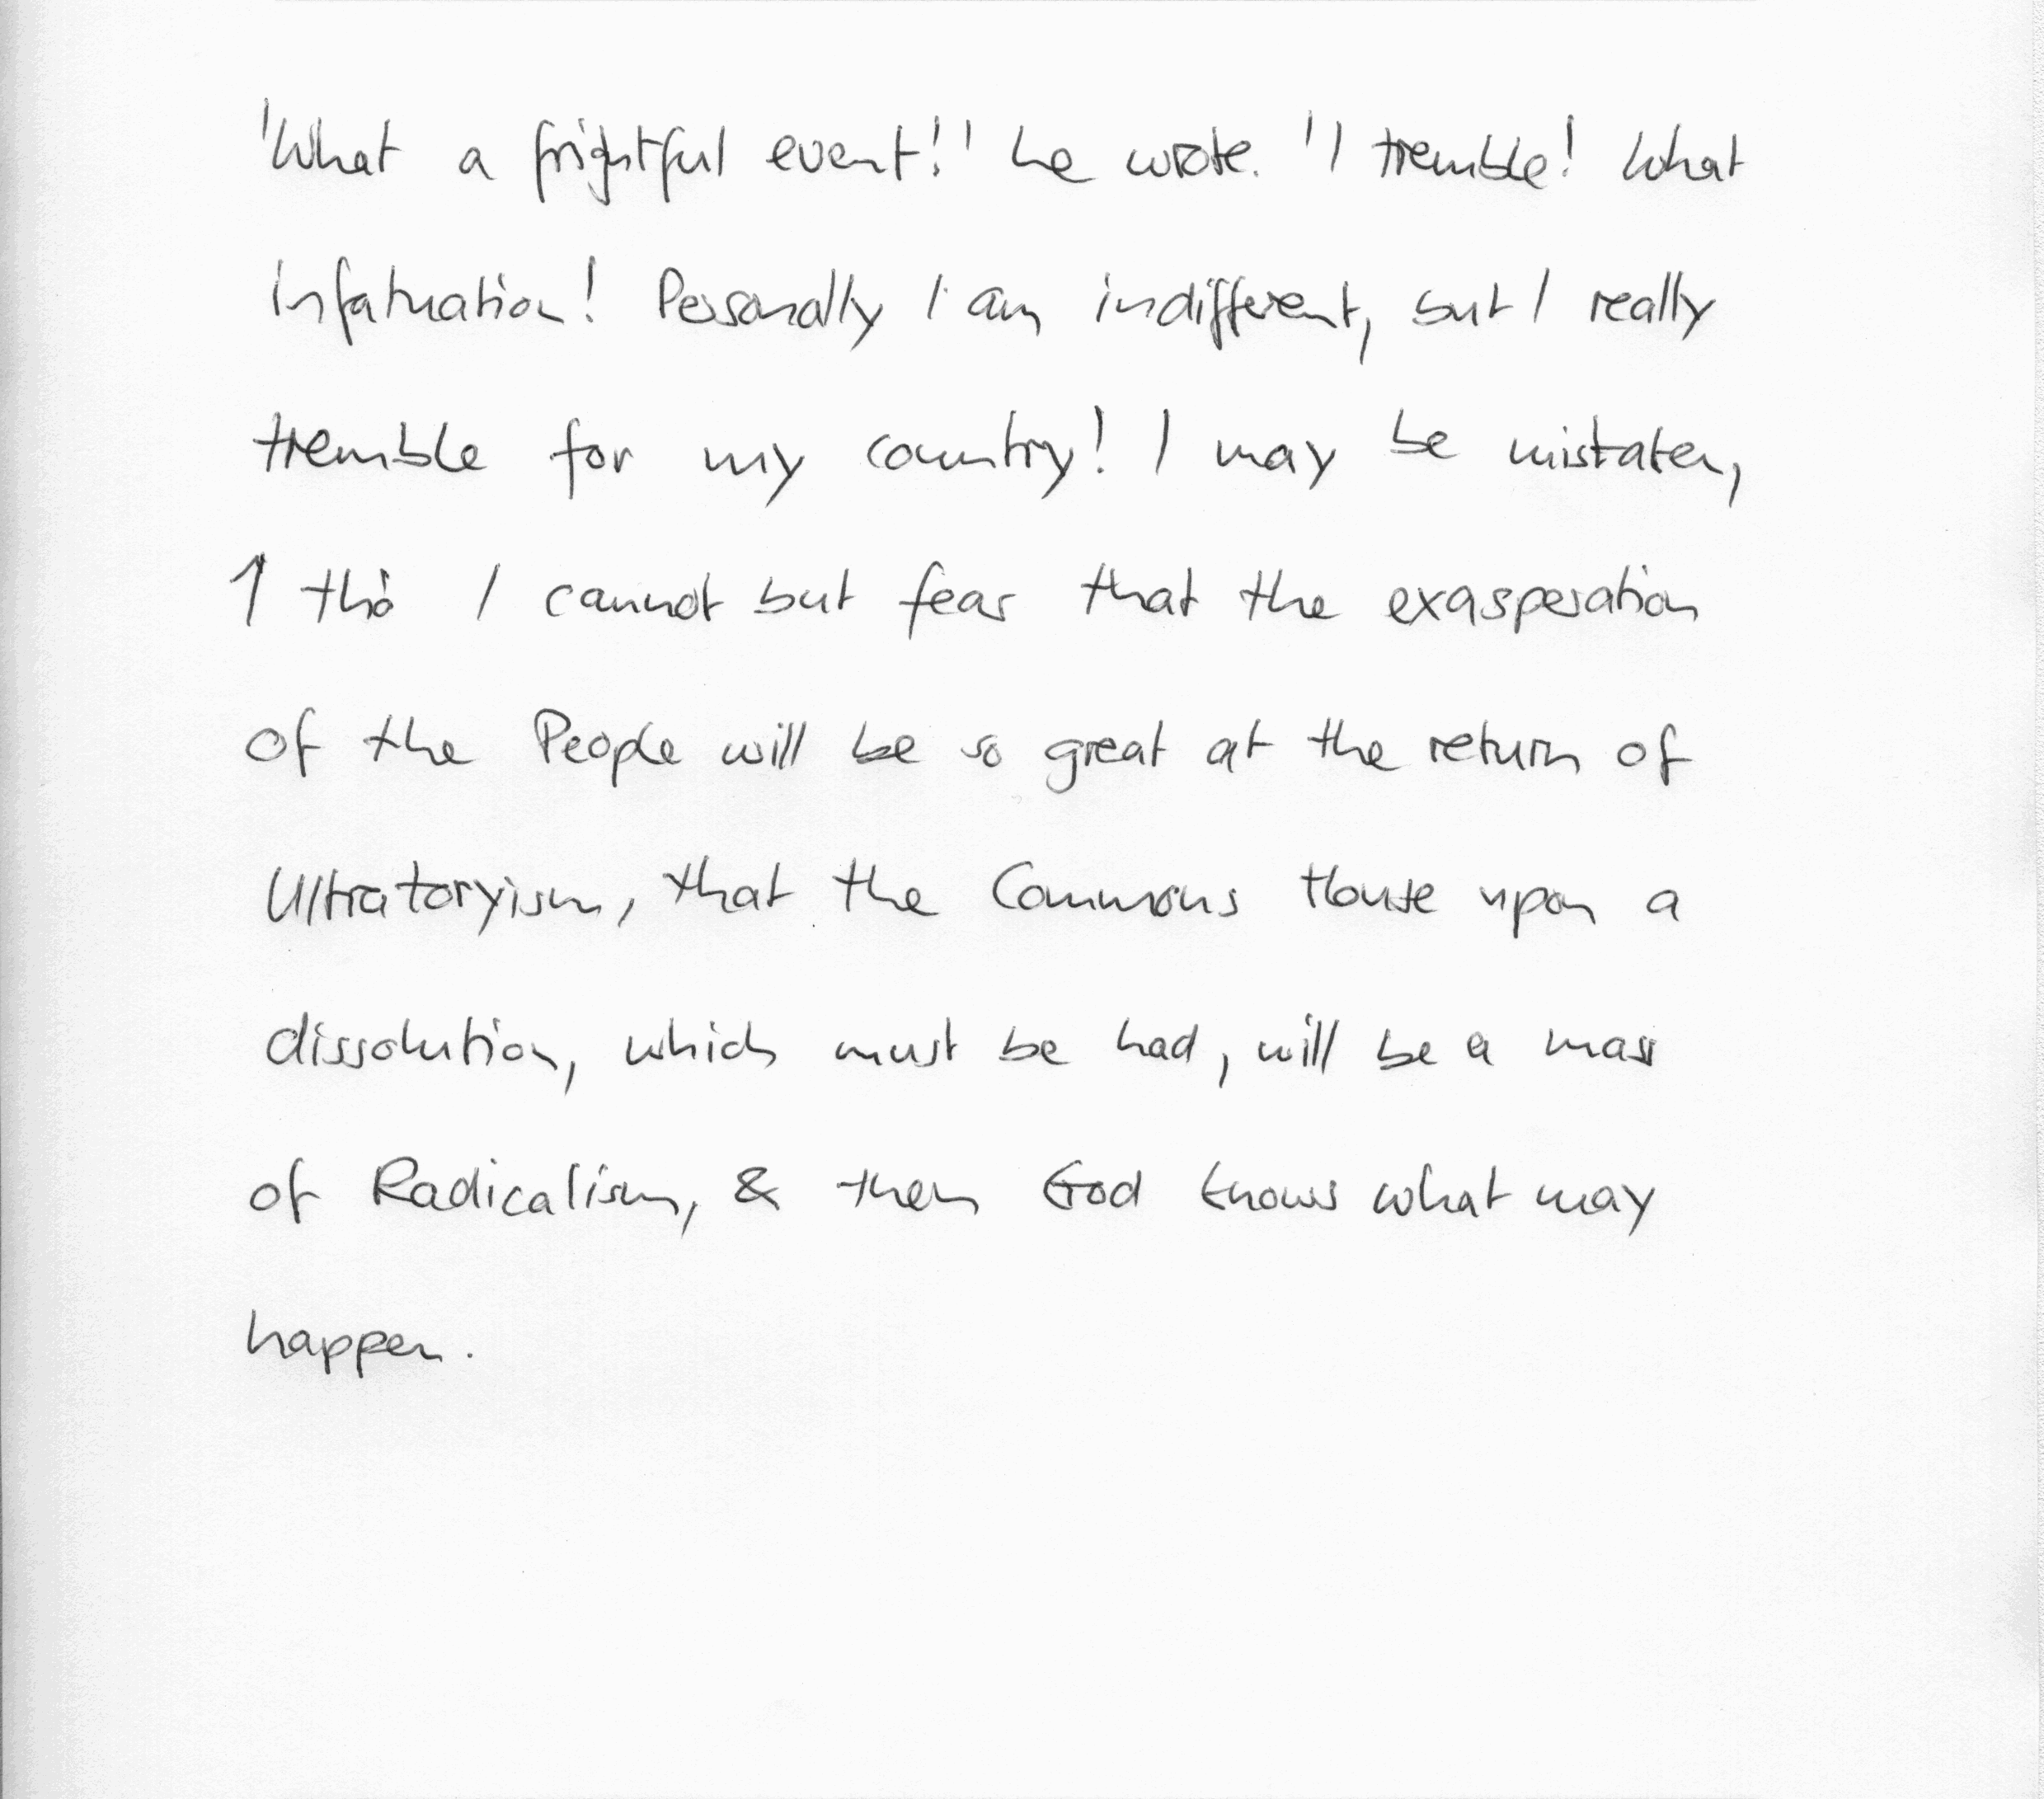 'What a frightful event!' he wrote. 'I tremble! What
infatuation! Personally I am indifferent, but I really
tremble for my country! I may be mistaken,
1 tho' I cannot but fear that the exasperation
of the People will be so great at the return of
Ultratoryism, that the Commons House upon a
dissolution, which must be had, will be a mass
of Radicalism, & then God knows what may
happen.